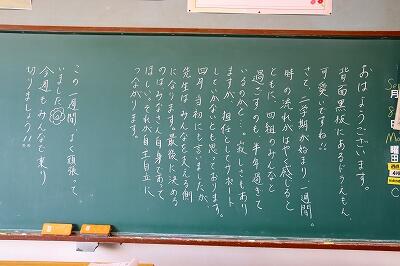 おはようございます。
背面黒板にあるドラえもん、
可愛いですね!!
さて、二学期が始まり一週間。
時の流れがはやく感じると
ともに、四組のみんなと
過ごすのも半年過ぎて
いるのかと…。寂しさもあり
ますが、担任としてサポート
していかないとも思っております。
四月当初にも言いましたが、
先生はみんなを支える側
になります。最後に決める
のはみなさん自身であって
ほしい。それが自主自立に
つながります。
この一週間、よく頑張って
いました。
今週もみんなで乗り
切りましょう!!
月
8
日
曜日